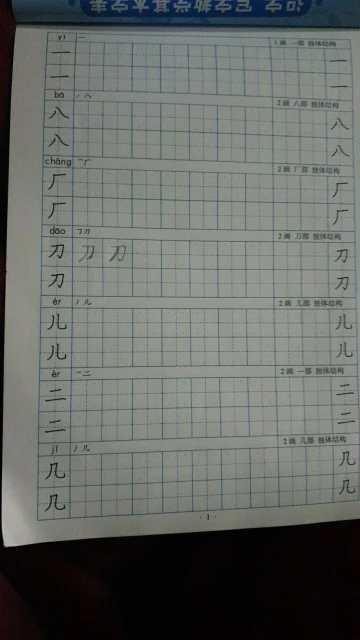 识字 写字教学基本字表
yī 一 1画 一部 独体结构
一 一
一 一
bā ノ 八 2画 八部 独体结构
八 八
八 八
chǎng 一 厂 2画 厂部 独体结构
厂 厂
厂 厂
dāo ㇆ 刀 2画 刀部 独体结构
刀 刀 刀 刀
刀 刀
ér ノ 儿 2画 儿部 独体结构
儿 儿
儿 儿
èr 一 二 2画 一部 独体结构
二 二
二 二
jī ノ 几 2画 几部 独体结构
几 几
几 几
· 1 ·